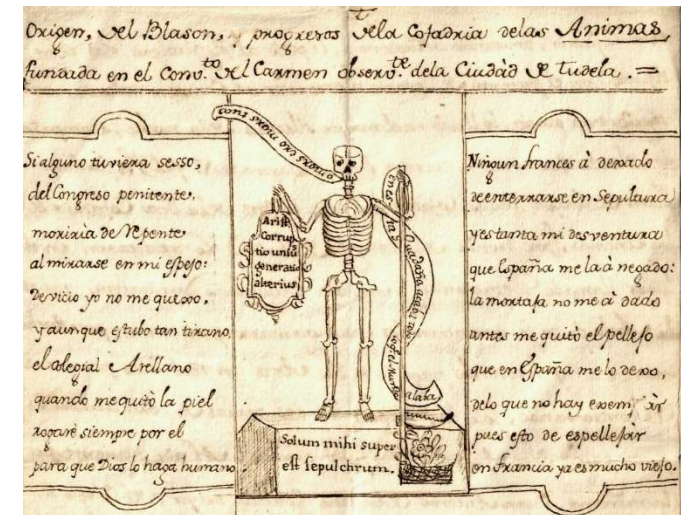 Origen, del Blason, y progresos dela Cofadria delas Animas,
fundada en el Conv.to del Carmen observ.te dela Ciudàd de Tudela. =
Si alguno tuviera sesso,
del Congreso penitente,
moriria de Repente
al mirarse en mi espejo:
De vicio yo no me quexo,
y aunque estubo tan tirano,
el Colegial Arellano
quando me quitò la piel
rogarè siempre por el
para que Dios lo haga humano
Arist
Corrup
tio unsũ
generatio
alterius,
Solum mihi super
est sepulchrum.
Ningun frances à dexado
de enterrarse en Sepultura
y es tanta mi desventura
que España me la à negado:
la mortaja no me à dado
antes me quitò el pellejo
que en España me lo dexo,
delo que no hay exem
pues esto de espellejàr
en Francia ya es mucho viejo.